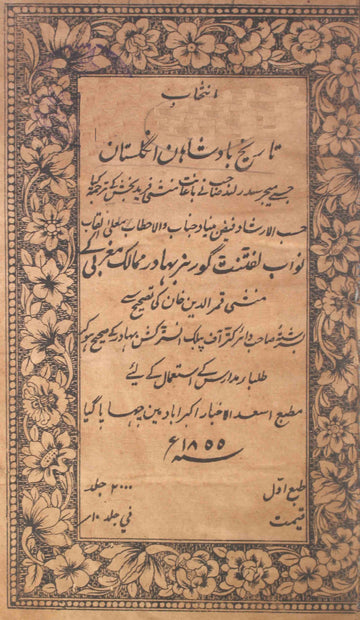 انتخاب
تاریخ بادشاہان انگلستان
جسے میجر سدرلنڈ صاحب نے باعانت منشی فرید بخش کے ترجمہ کیا
حسب الارشاد فیض بنیاد جناب والاخطاب معلی القاب
نواب لفٹنٹ گورنر بہادر ممالک مغربی کے
منشی قمرالدین خان کی تصحیح سے
صاحب ڈائرکٹر آف پبلک انسٹرکشن بہادر کے صحیح ہو کر
طلبار مدارس کے استعمال کے لیئے
مطبع اسعد الاخبار اکبرآباد مین چھاپا گیا
سنہ ۱۸۵۵ ع
طبع اوّل ۲۰۰۰ جلد
قیمت فی جلد ۱۰ر